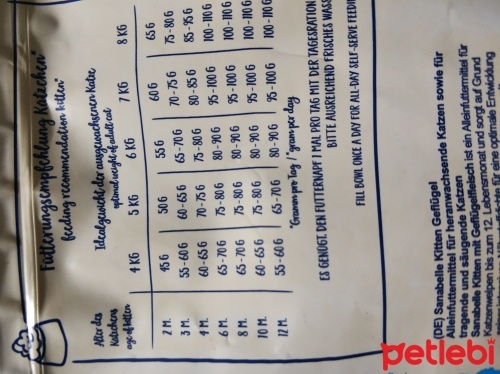 Fütterungsempfehlung Kätzchen*
feeding recommendation kitten*
Alter des Kätzchens
age of kitten
Idealgewicht der ausgewachsenen Katze
optimal weight of adult cat
4 KG 5 KG 6 KG 7 KG 8 KG
2 M. 45 G 50 G 55 G 60 G 65 G
3 M. 55 - 60 G 60 - 65 G 65 - 70 G 70 - 75 G 75 - 80 G
4 M. 60 - 65 G 70 - 75 G 75 - 80 G 80 - 85 G 85 - 95 G
6 M. 65 - 70 G 75 - 80 G 80 - 90 G 95 - 100 G 100 - 110 G
8 M. 65 - 70 G 75 - 80 G 80 - 90 G 95 - 100 G 100 - 110 G
10 M. 60 - 65 G 75 - 80 G 80 - 90 G 95 - 100 G 100 - 110 G
12 M. 55 - 60 G 65 - 70 G 80 - 90 G 95 - 100 G 100 - 110 G
*Gramm pro Tag / *gram per day
ES GENÜGT, DEN FUTTERNAPF 1 MAL PRO TAG MIT DER TAGESRATION
BITTE AUSREICHEND FRISCHES WASS
FILL BOWL ONCE A DAY FOR ALL-DAY SELF-SERVE FEEDI
(DE) Sanabelle Kitten Geflügel
Alleinfuttermittel für heranwachsende Katzen sowie für
tragende und säugende Katzen
Sanabelle Kitten mit Geflügelfleisch ist ein Alleinfuttermittel für
Katzenwelpen bis zum 12. Lebensmonat und sorgt auf Grund
optimale Entwicklung
petlebi